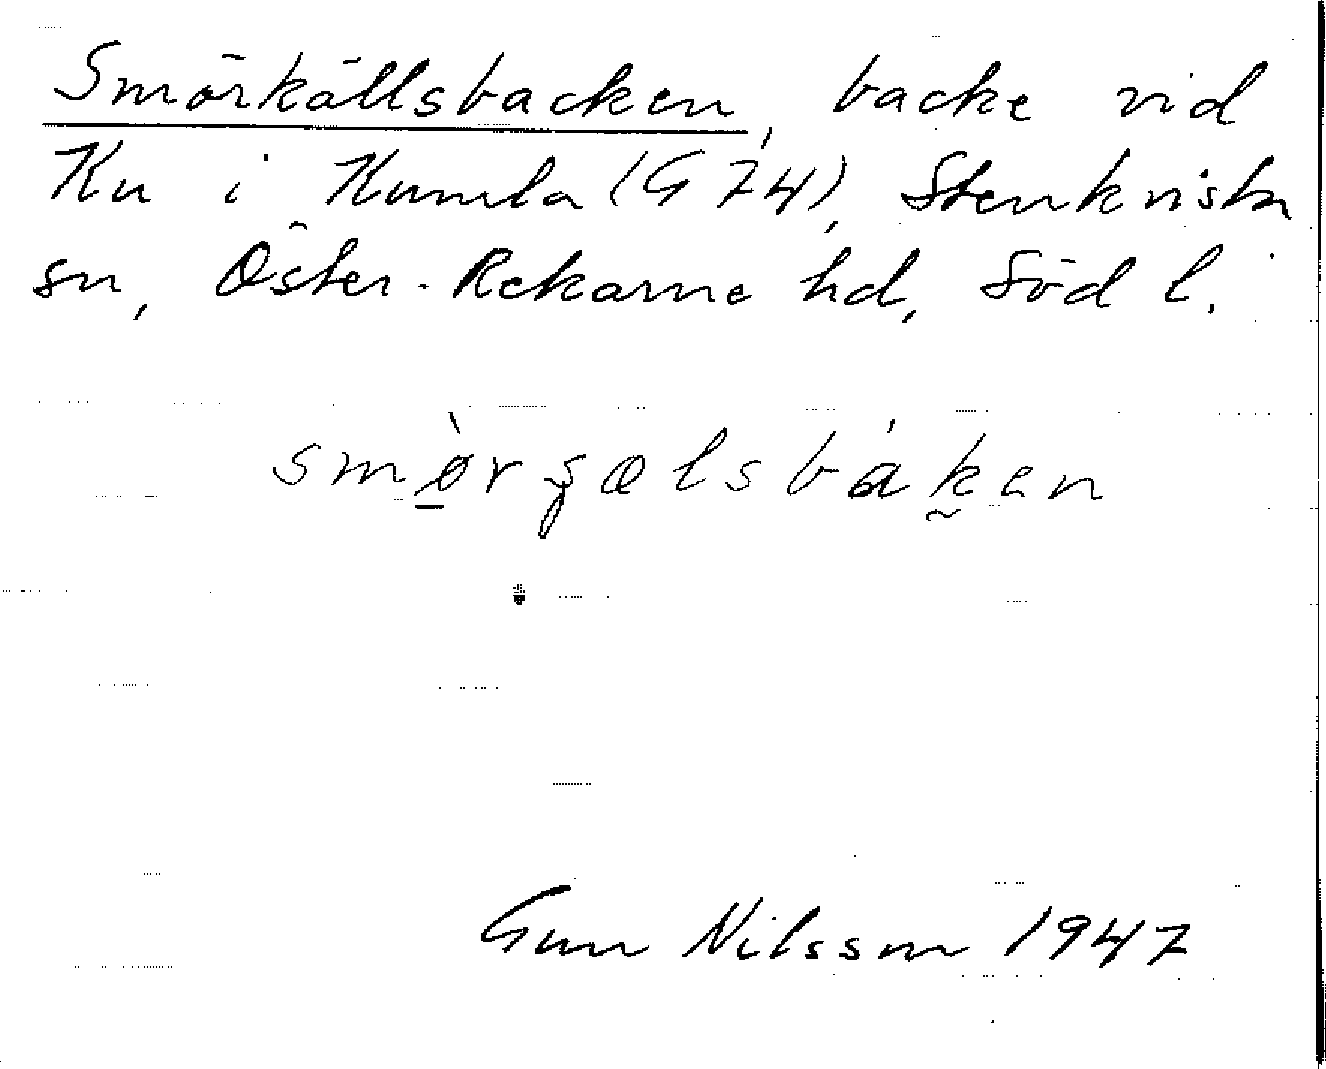 Smörkällsbacken, backe vid
Ku i Kumla (G 74), Stenkvista
sn, Öster-Rekarne hd, Söd l.
smø̱̀rʂælsbáken
Gun Nilsson 1947